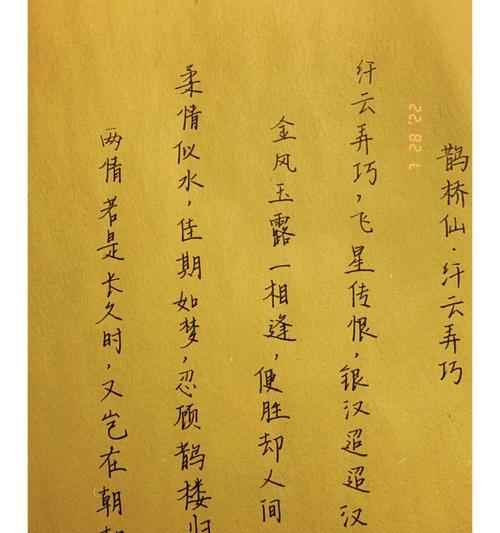 鹊桥仙·纤云弄巧
纤云弄巧，飞星传恨，银汉迢迢汉
金风玉露一相逢，便胜却人间
柔情似水，佳期如梦，忍顾鹊楼归
两情若是长久时，又岂在朝